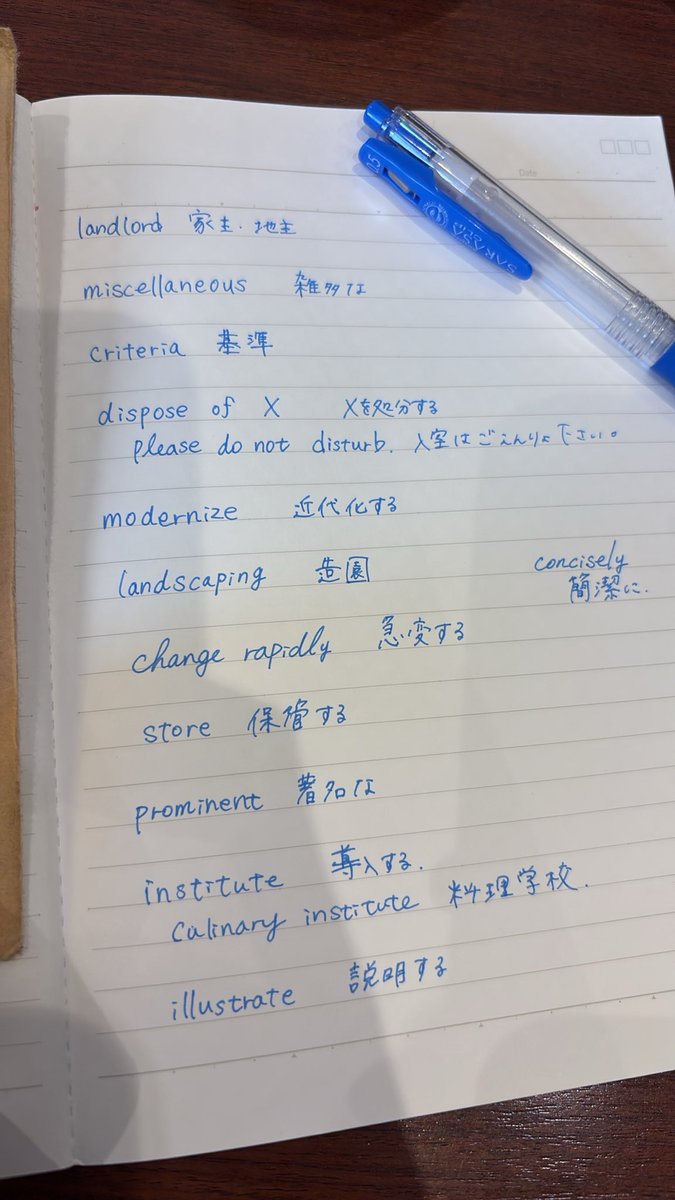 Date
1.5
SARASA
landlord 家主・地主
miscellaneous 雑多な
criteria 基準
dispose of X Xを処分する
please do not disturb. 入室はごえんりょ下さい。
modernize 近代化する
landscaping 造園
concisely
簡潔に.
change rapidly 急変する
store 保管する
prominent 著名な
institute 導入する.
culinary institute 料理学校.
illustrate 説明する